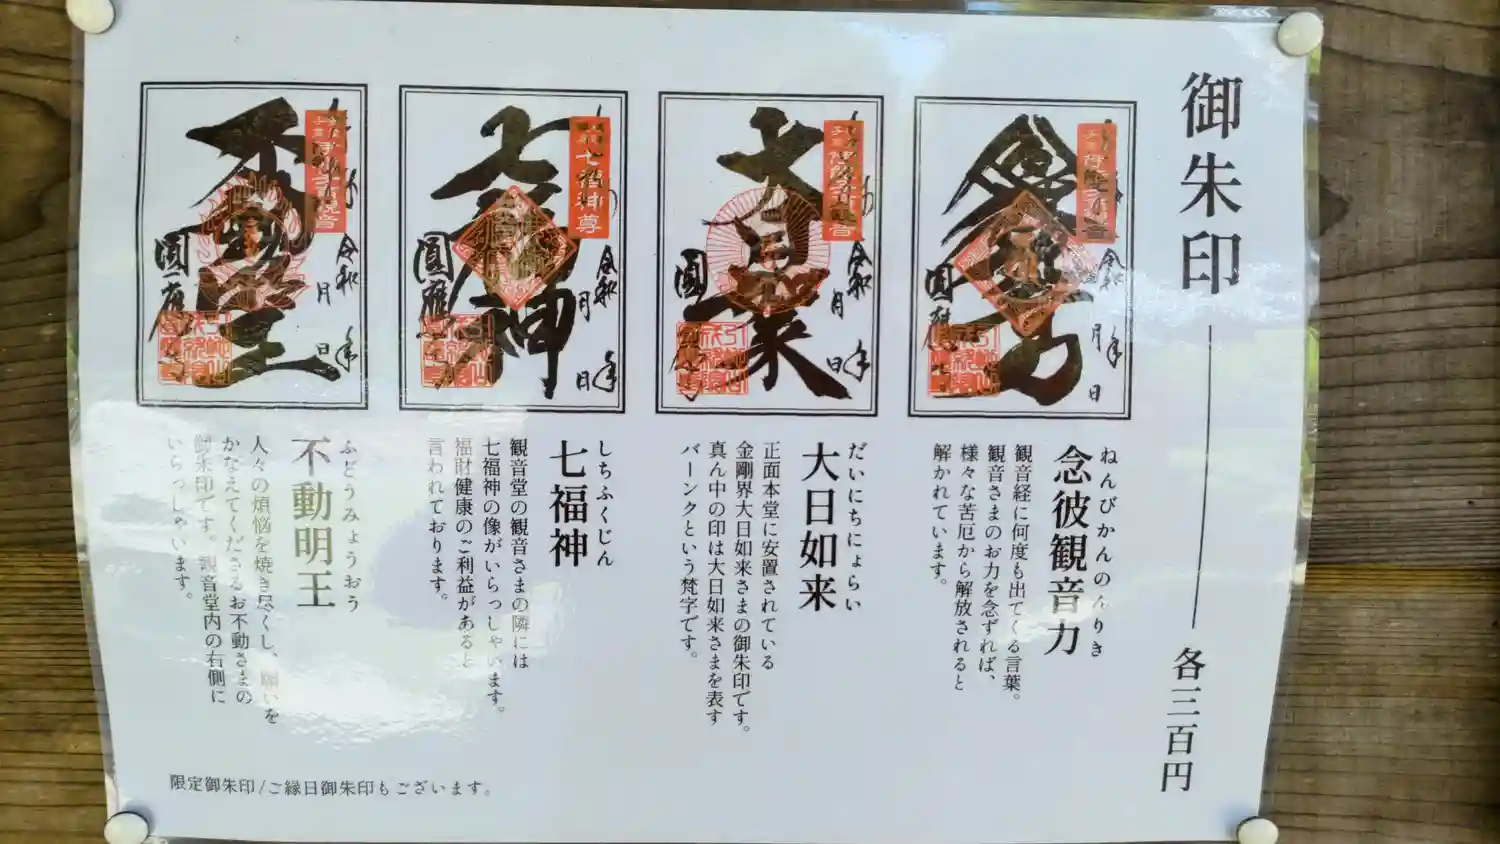 御朱印
各三百円
ねんぴかんのんりき
念彼観音力
観音経に何度も出てくる言葉。
観音さまのお力を念ずれば、
様々な苦厄から解放されると
解かれています。
だいにちにょらい
大日如来
正面本堂に安置されている
金剛界大日如来さまの御朱印です。
真ん中の印は大日如来さまを表す
バーンクという梵字です。
しちふくじん
七福神
観音堂の観音さまの隣には
七福神の像がいらっしゃいます。
福財健康のご利益があると
言われております。
ふどうみょうおう
不動明王
人々の煩悩を焼き尽くし、願いを
かなえてくださるお不動さまの
御朱印です。観音堂内の右側に
いらっしゃいます。
限定御朱印/ご縁日御朱印もございます。
念彼観音力
令和 年 月 日
大日如来
令和 年 月 日
七福神
令和 年 月 日
不動明王
令和 年 月 日